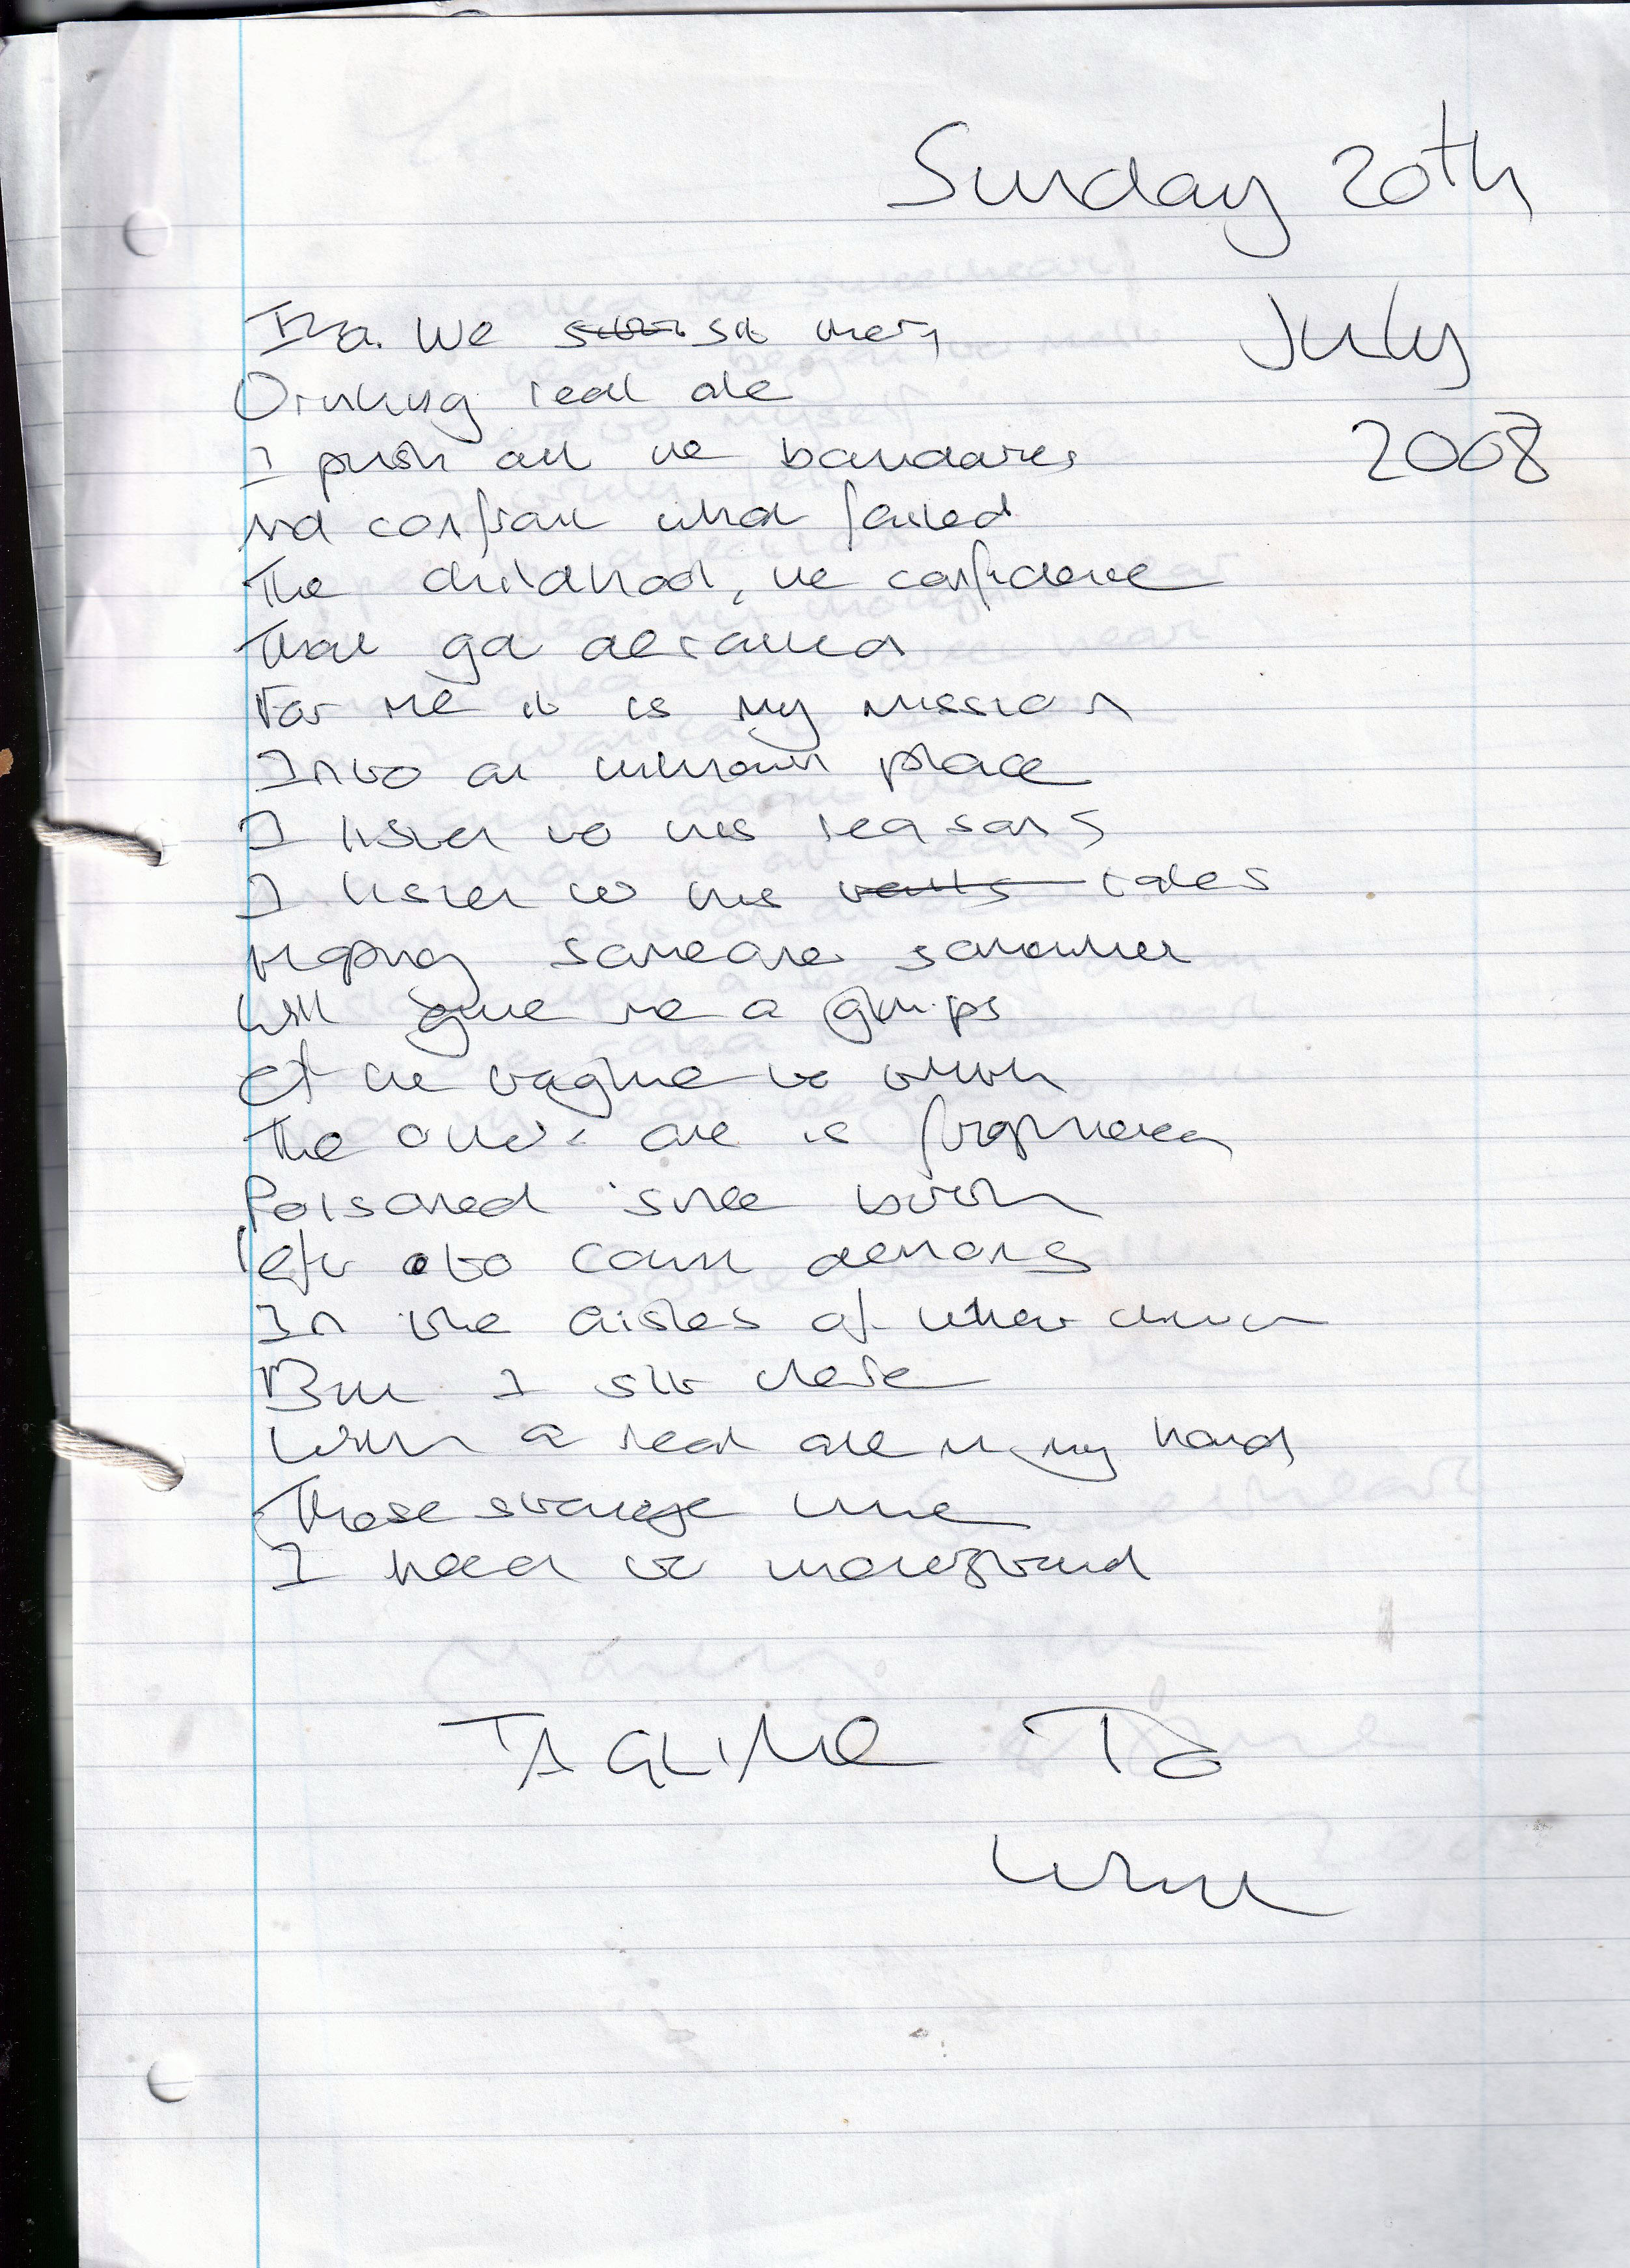 Sunday 20th
July
2008
We sit there
Drinking real ale
I push all the boundaries
And confront what failed
The childhood, the confidence
That got
For me it is my mission
Into an unknown place
I listen to his reasons
I listen to his tales
Hoping someone somewhere
Will give me a glimps
Of the vague to which
The other one is
Poisoned since birth
left to count demons
In the aisles of
But I sit there
With a real ale in my hand
Those strange
I need to understand
TAGLINE TO